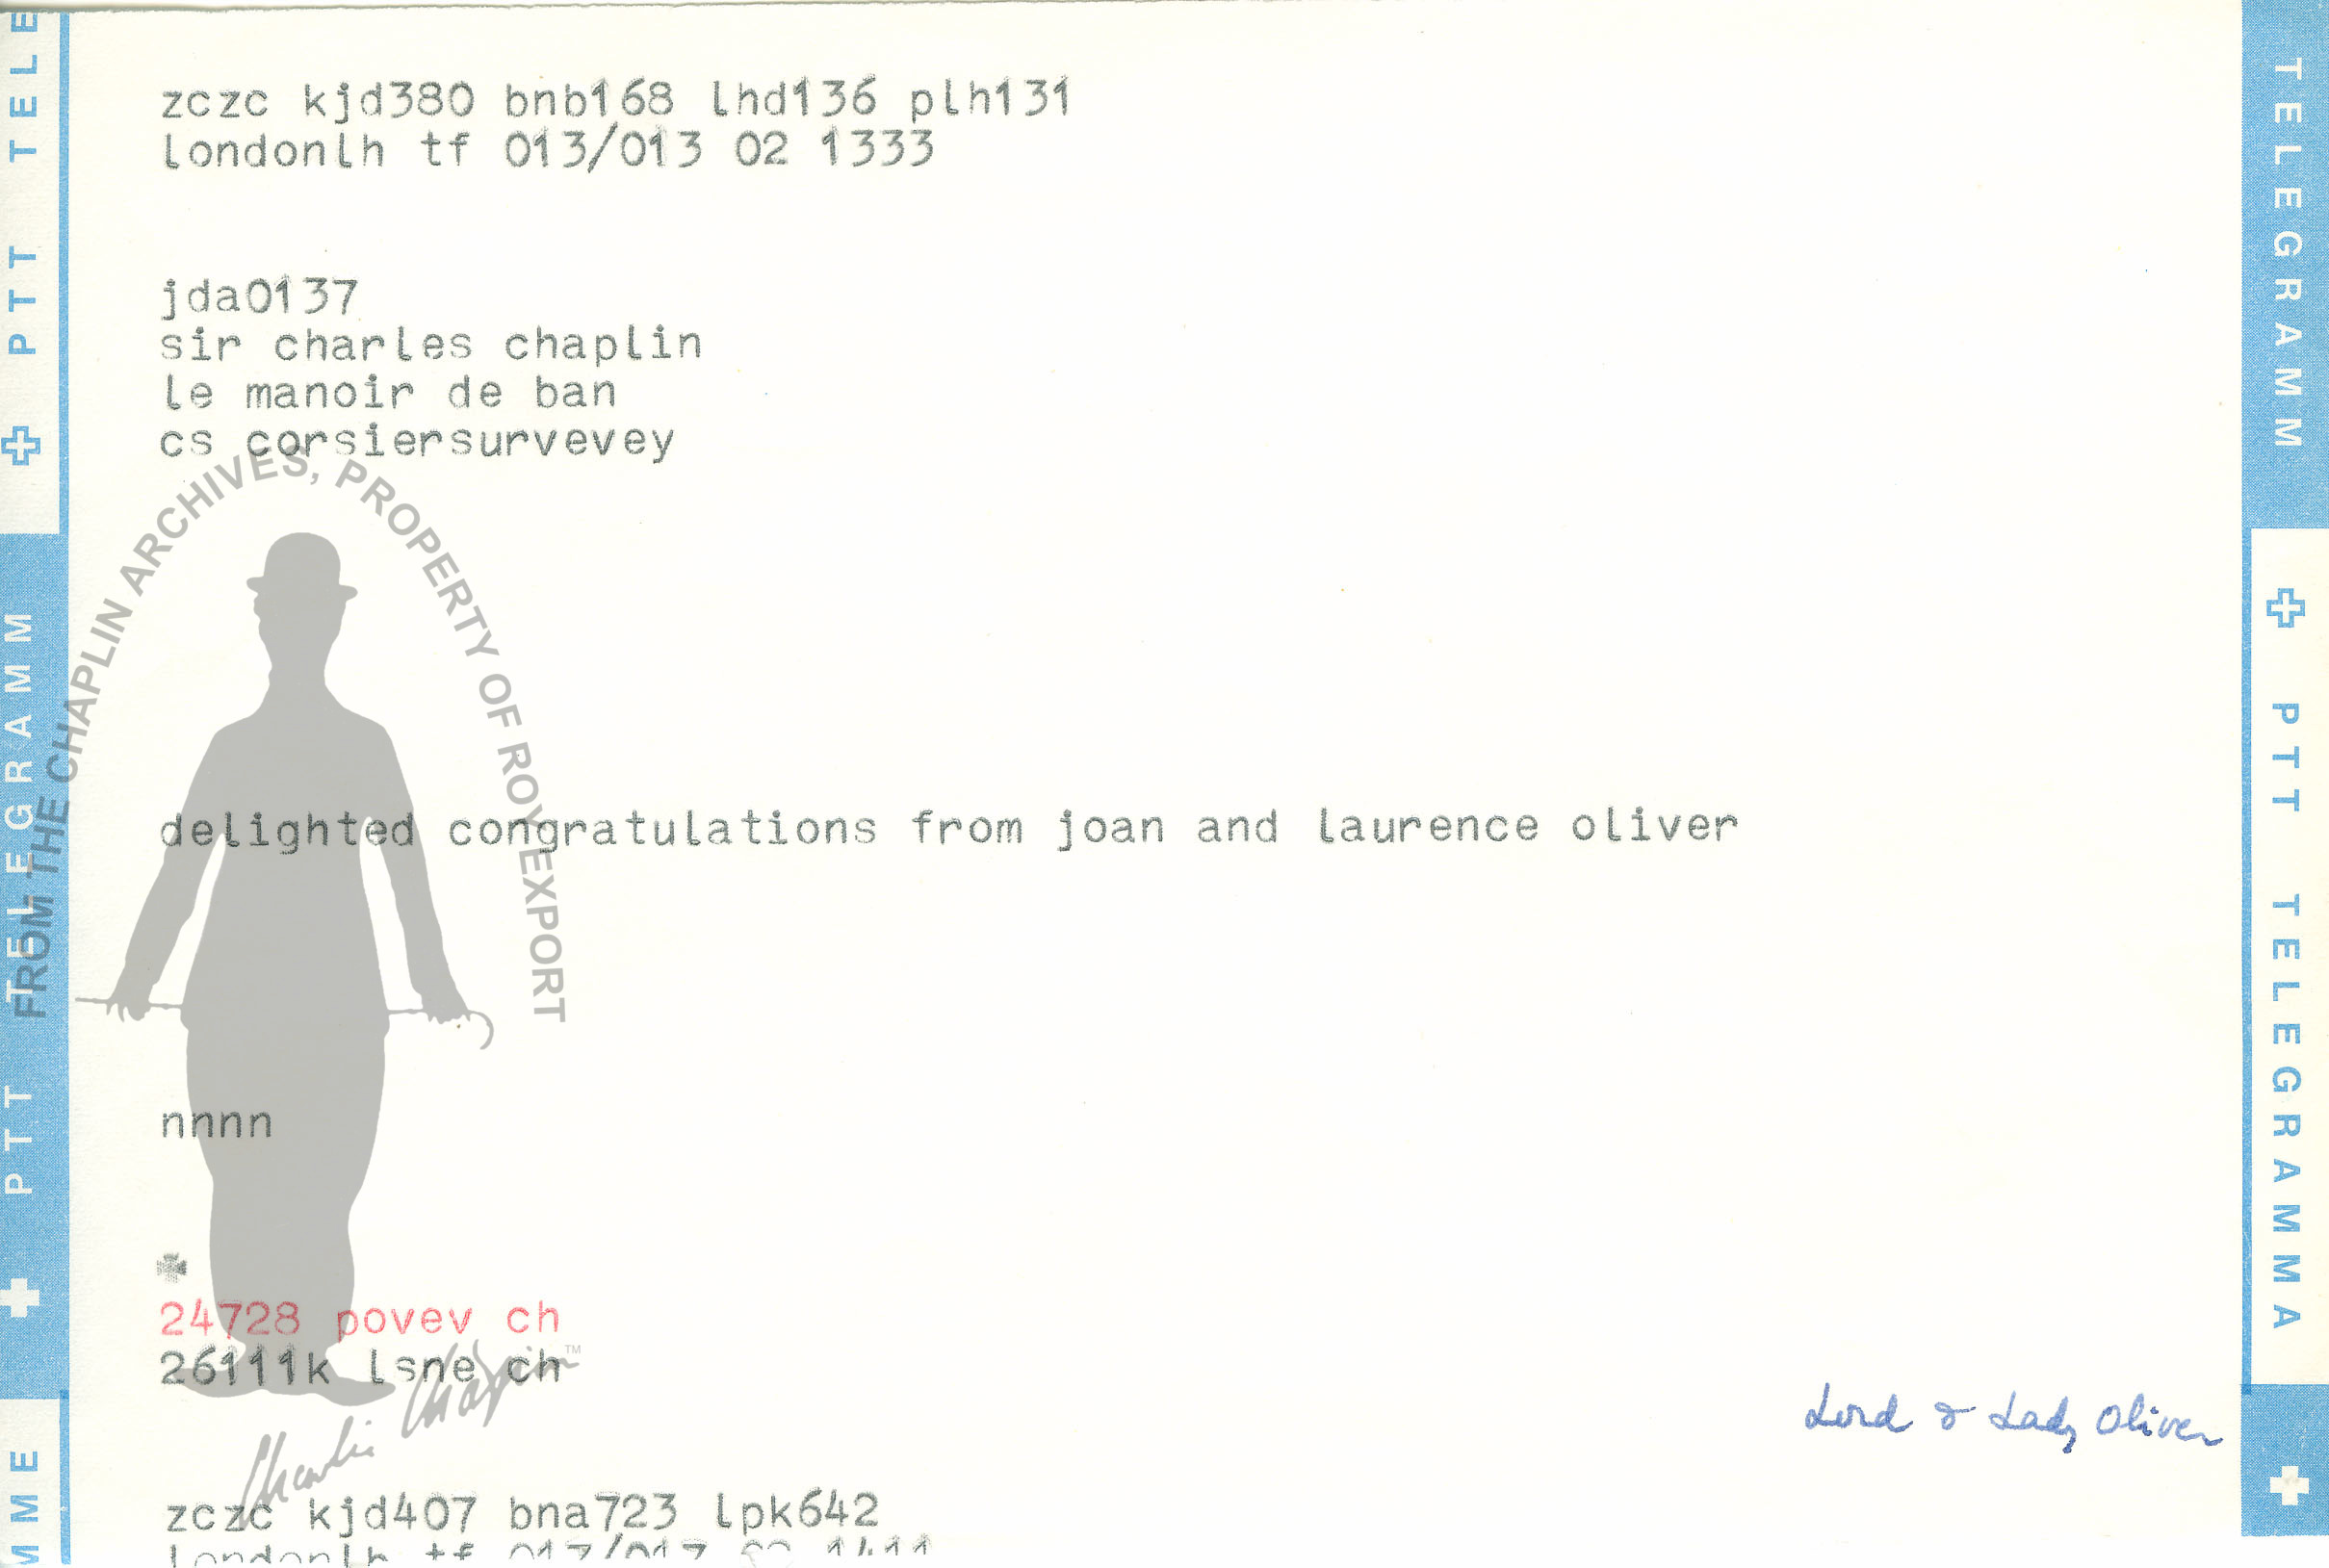 zczc kjd380 bnb168 lhd136 plh131
londonlh tf 013/013 02 1333
jda0137
sir charles chaplin
le manoir de ban
cs corsiersurvevey
delighted congratulations from joan and laurence oliver
nnnn
24728 povev ch
26111k lsne ch
Lord & Lady Oliver
zczc kjd407 bna723 lpk642
londonlh tf
FROM THE CHAPLIN ARCHIVES, PROPERTY OF ROY EXPORT
Charlie Chaplin™
PTT TELE
PTT TELEGRAMM
MME
TELEGRAMM
PTT TELEGRAMMA